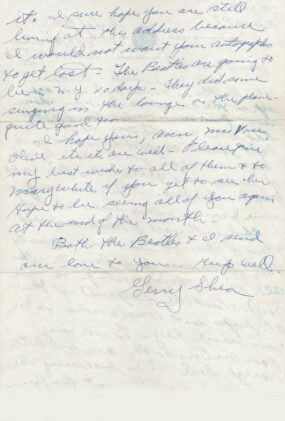 it. I sure hope you are still
living at this address because
I would not want your autographs
to get lost. The Beatles are going to
be in N.Y. 10 days. They did some
singing in the lounge on the plane
quite good too.
I hope you, ann, mr
olive etc etc are well - Please give
my best wishes to all of them & to
mary white if you get to see her.
Hope to be seeing all of you again
at the end of the month.
Both the Beatles & I send
our love to you. Keep well.
Gerry Shea